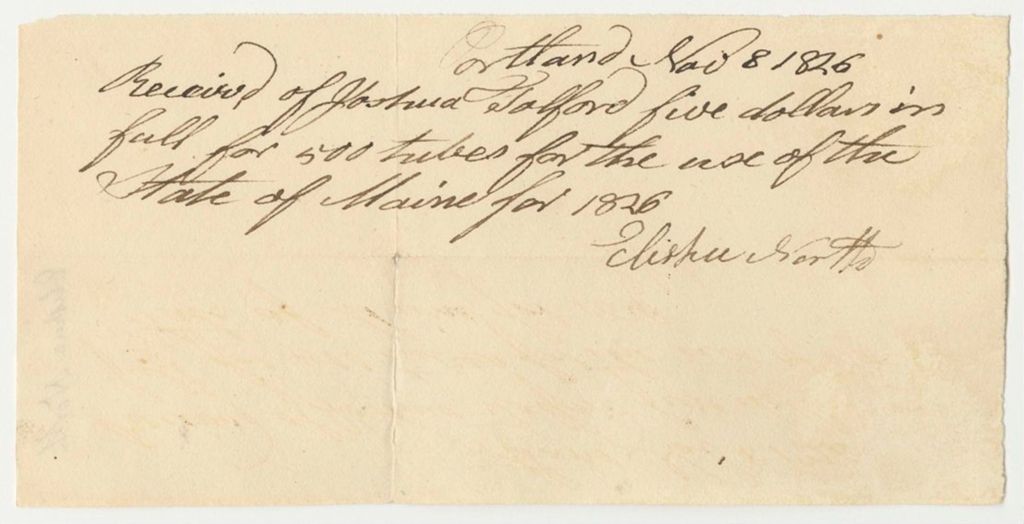 Portland Nov 8 1826
Received of Joshua Tolford five dollars in
full for 500 tubes for the use of the
State of Maine for 1826
Elisha North